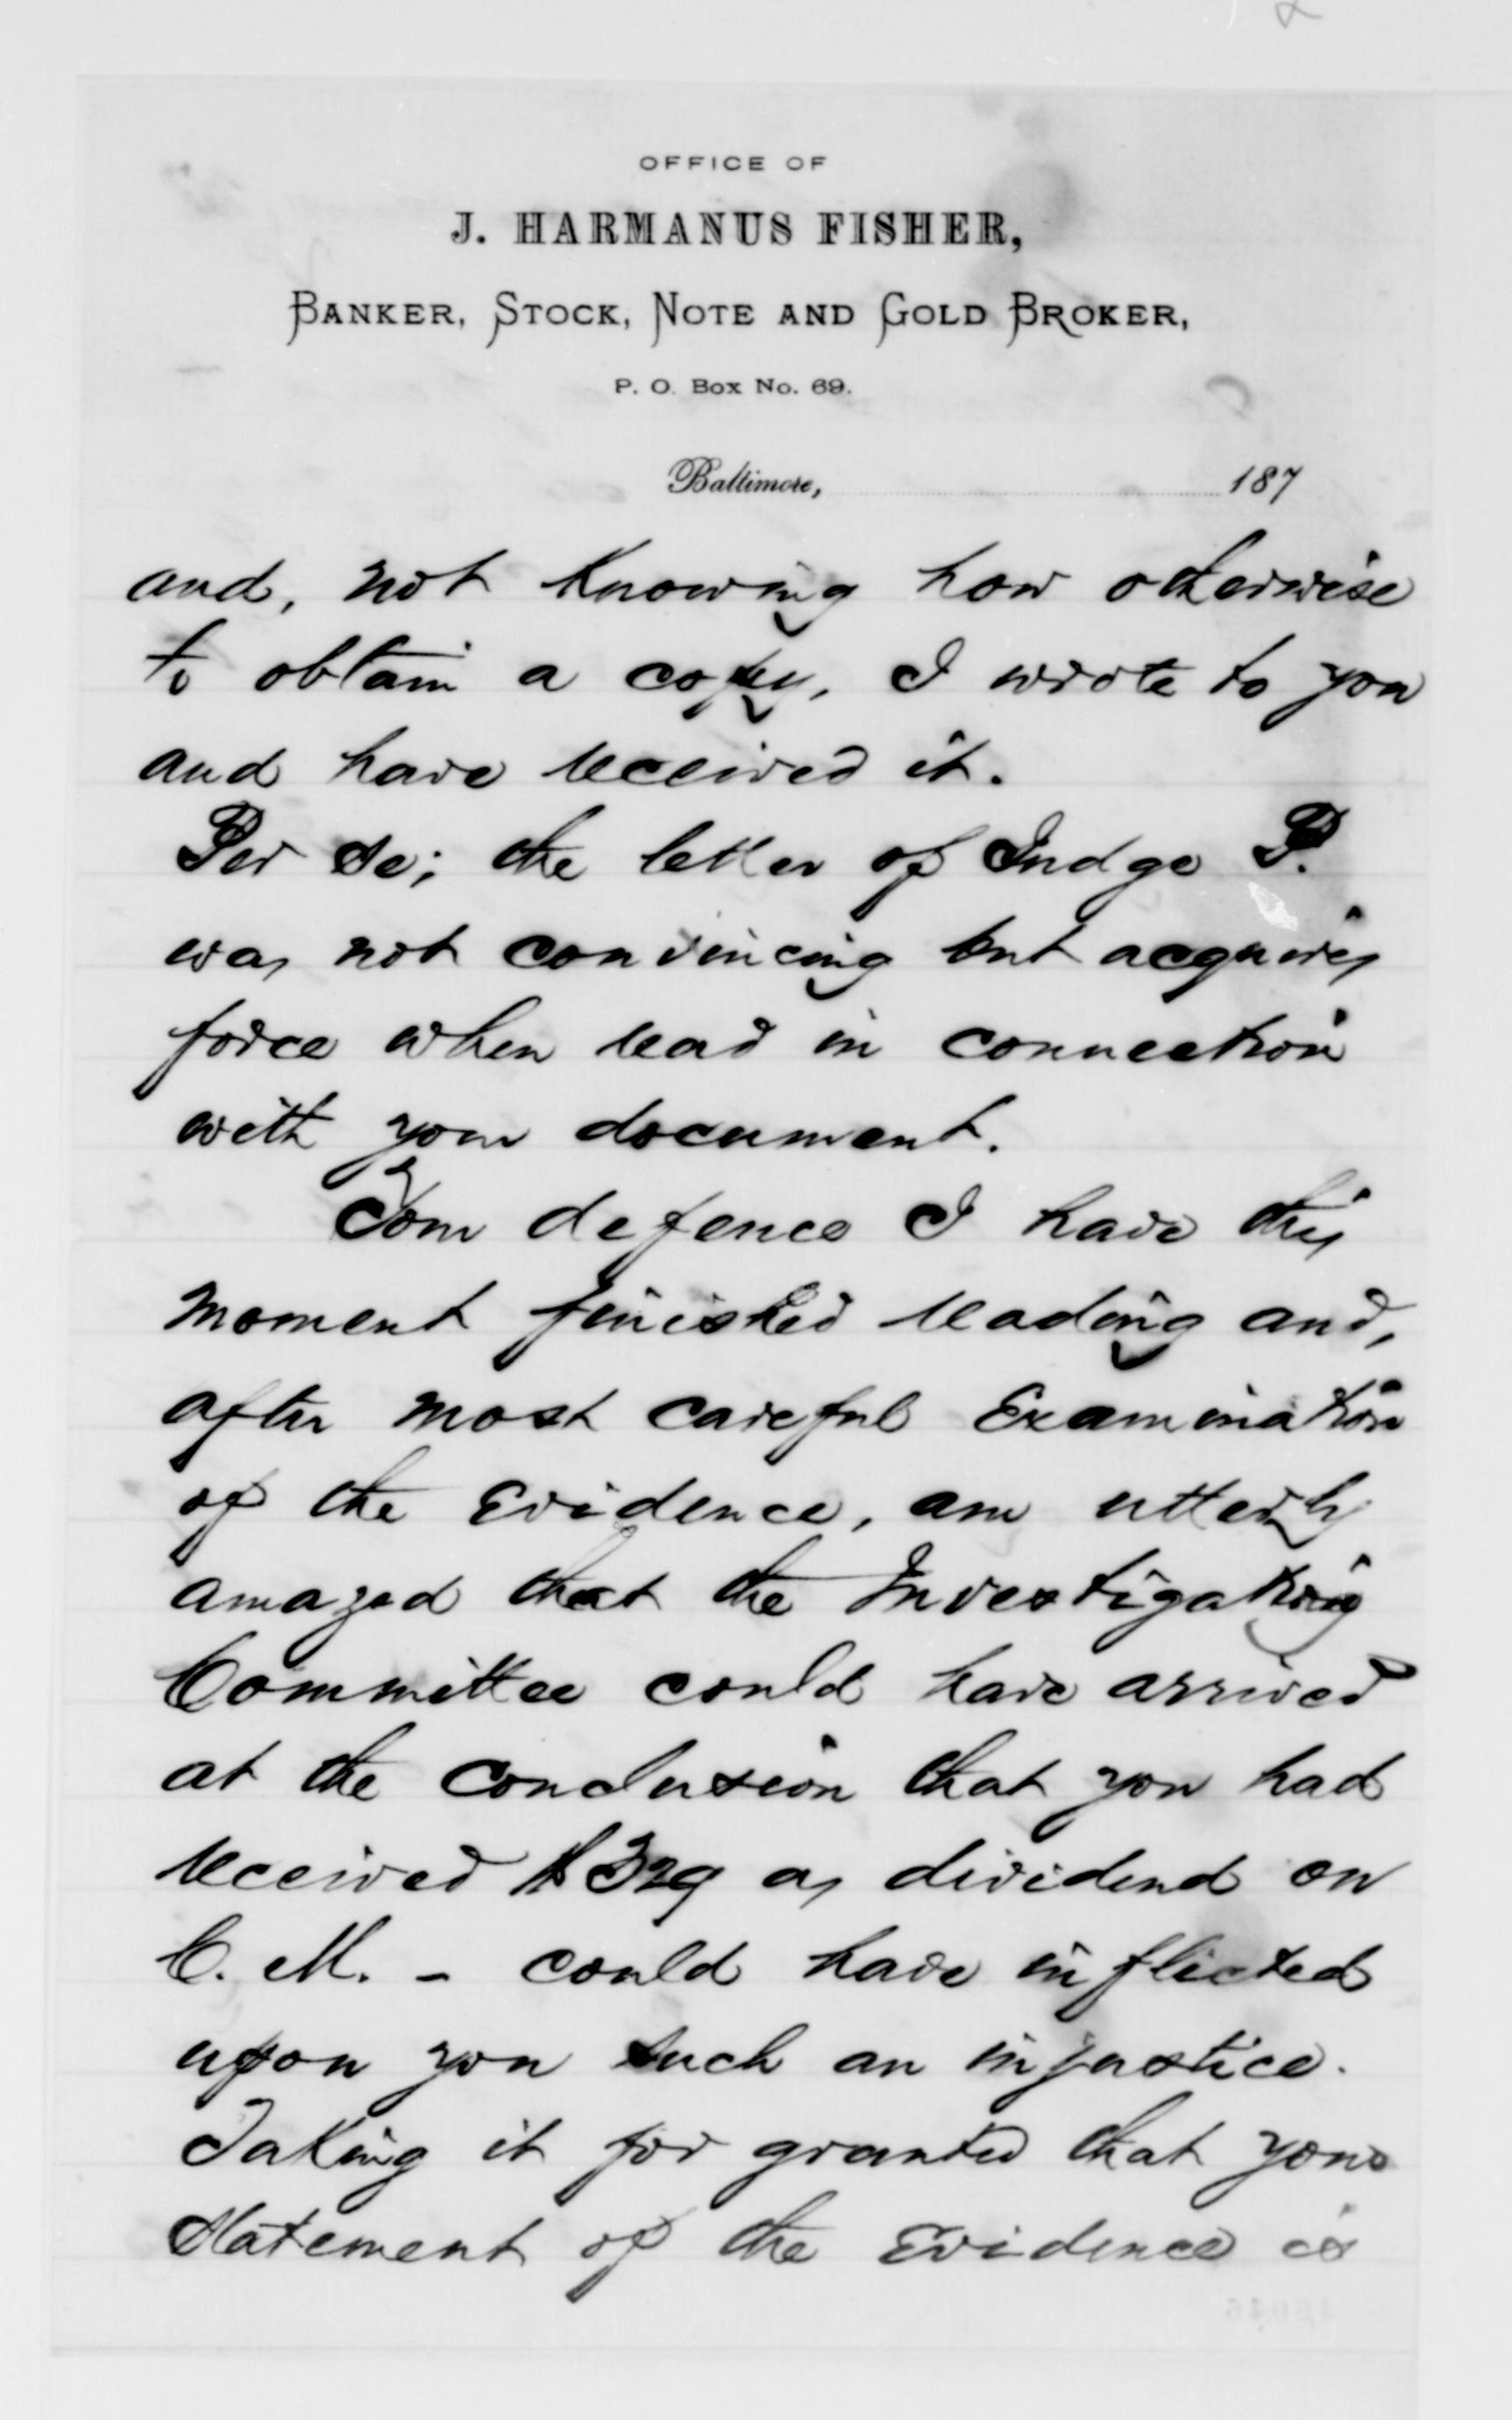 OFFICE OF
J. HARMANUS FISHER,
BANKER, STOCK, NOTE AND GOLD BROKER,
P. O. Box No. 69.
Baltimore, 187
and, not knowing how otherwise
to obtain a copy, I wrote to you
and have received it.
Per se; the letter of Judge P.
was not convincing but acquires
force when read in connection
with your document.
Your defence I have this
moment finished reading and,
after most careful Examination
of the Evidence, am utterly
amazed that the Investigating
Committee could have arrived
at the conclusion that you had
received $329 as dividend on
C. M. - could have inflicted
upon you such an injustice.
Taking it for granted that your
Statement of the Evidence is